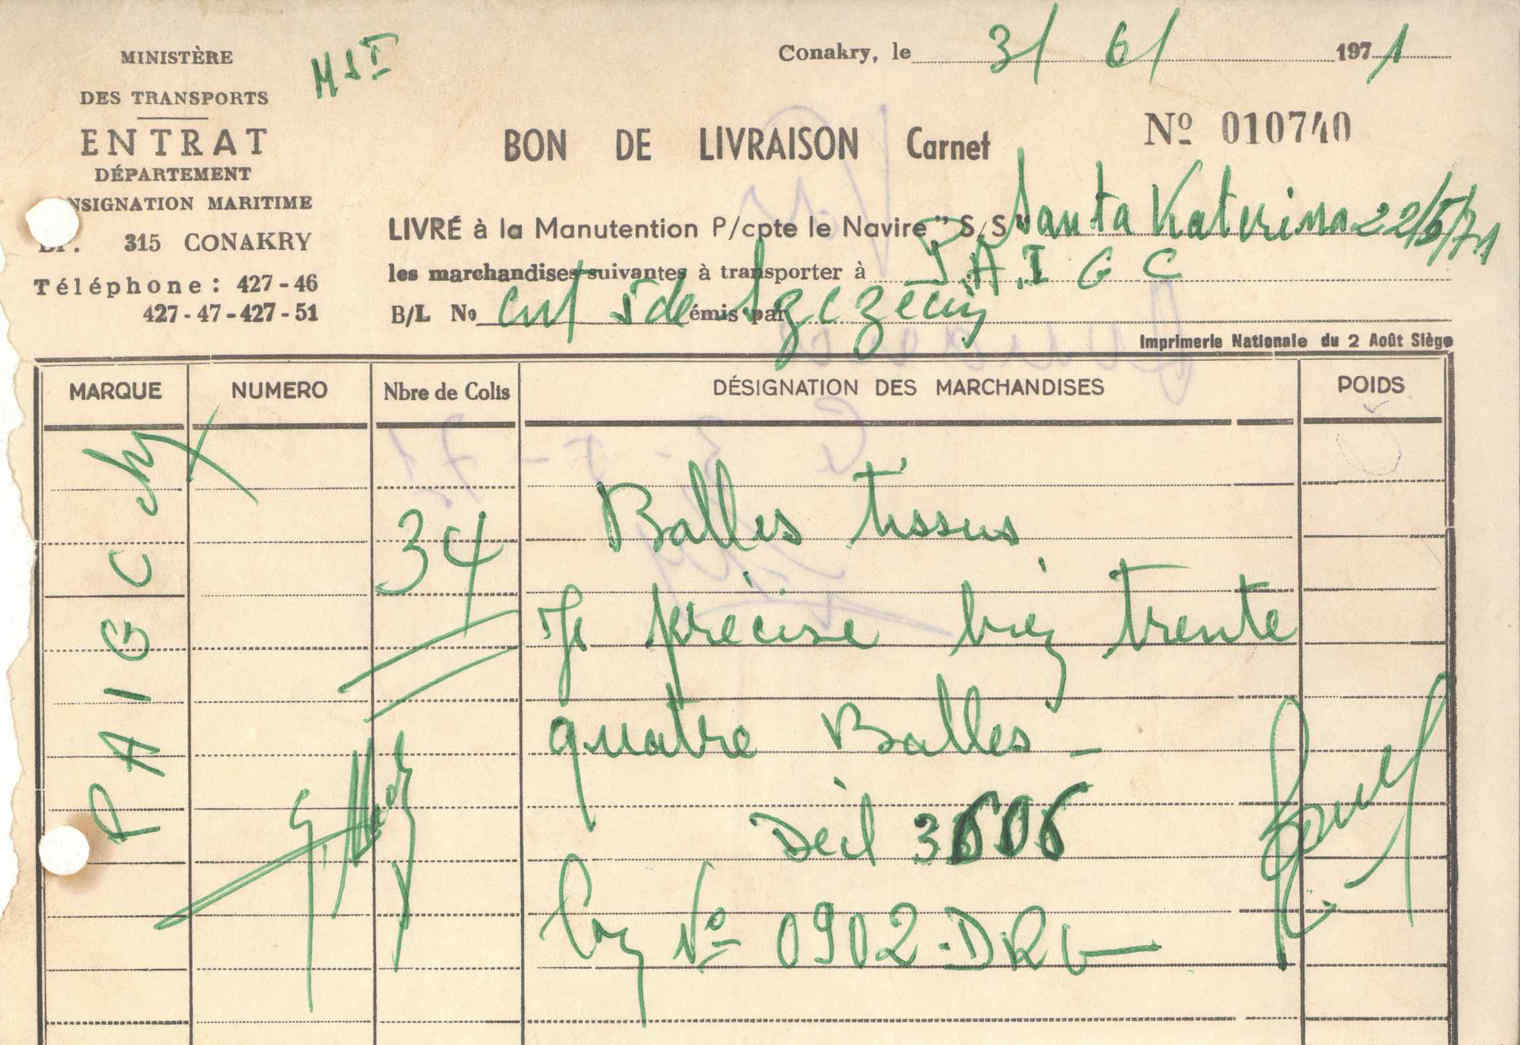 MINISTÈRE
DES TRANSPORTS
ENTRAT
DÉPARTEMENT
NSIGNATION MARITIME
BP. 315 CONAKRY
Téléphone : 427-46
427-47-427-51
M S I
Conakry, le 3/ 6/ 1971
BON DE LIVRAISON Carnet
Nº 010740
LIVRÉ à la Manutention P/cpte le Navire "S/S" Santa Katerina 22/5/71
les marchandises suivantes à transporter à P.A.I G C
B/L No émis par
Imprimerie Nationale du 2 Août Siège
MARQUE NUMERO Nbre de Colis DÉSIGNATION DES MARCHANDISES POIDS
PAIGC
34 Balles tissus
Je précise bien trente
quatre Balles -
3606
Nº 0902.DRG